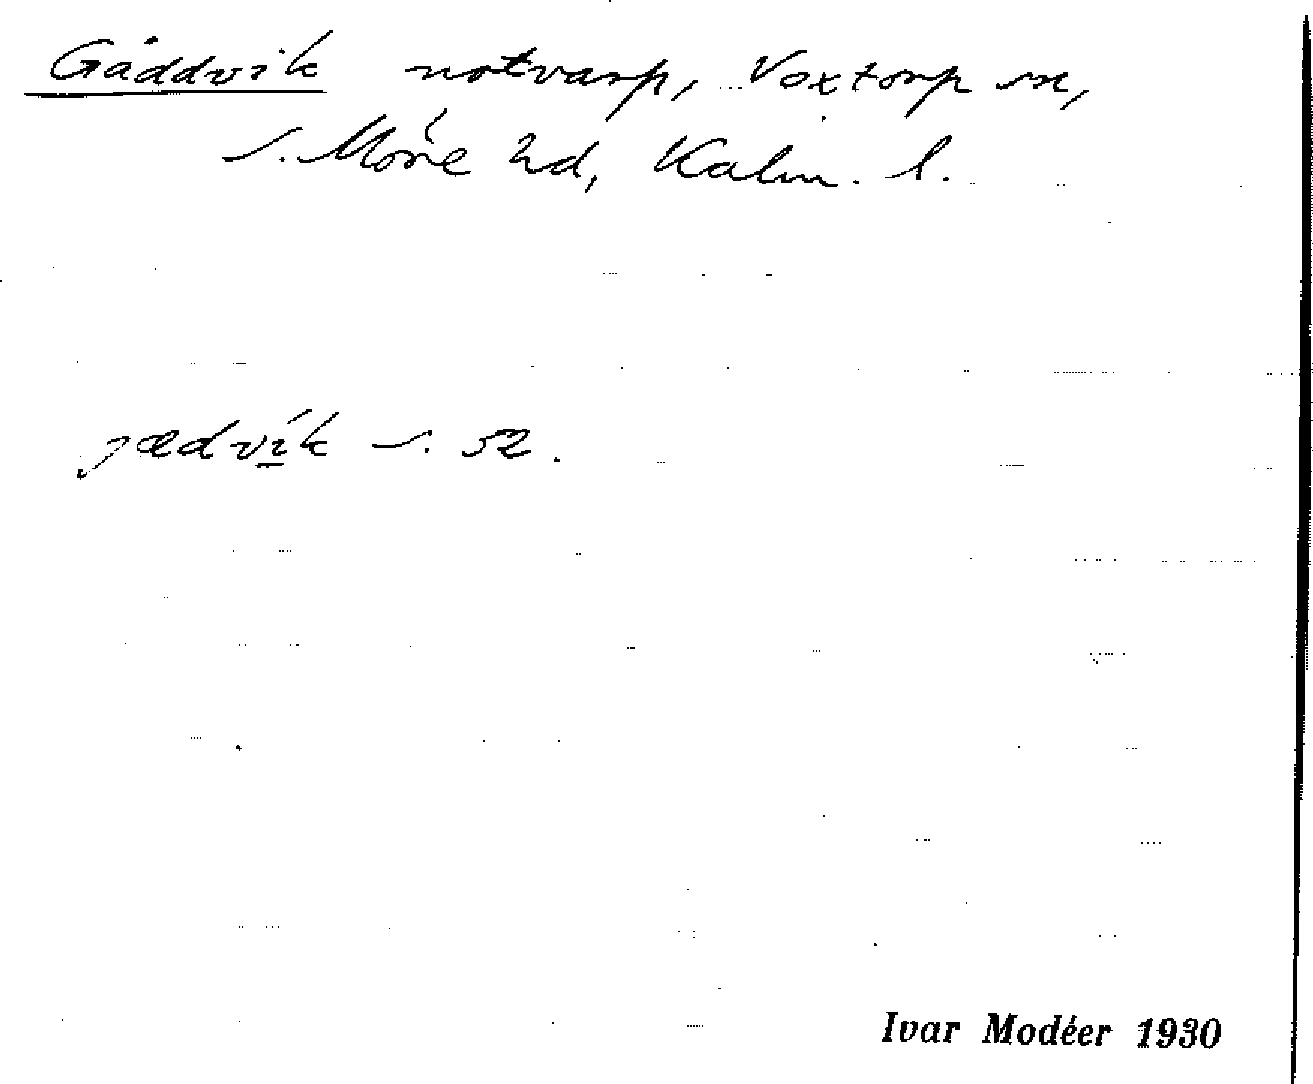 Gäddvik notvarp, Voxtorp sn,
S. Möre hd, Kalm. l.
jædvik s. 52.
Ivar Modéer 1930